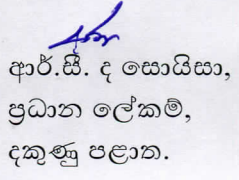 ආර්.සී. ද සොයිසා,
ප්‍රධාන ලේකම්,
දකුණු පළාත.